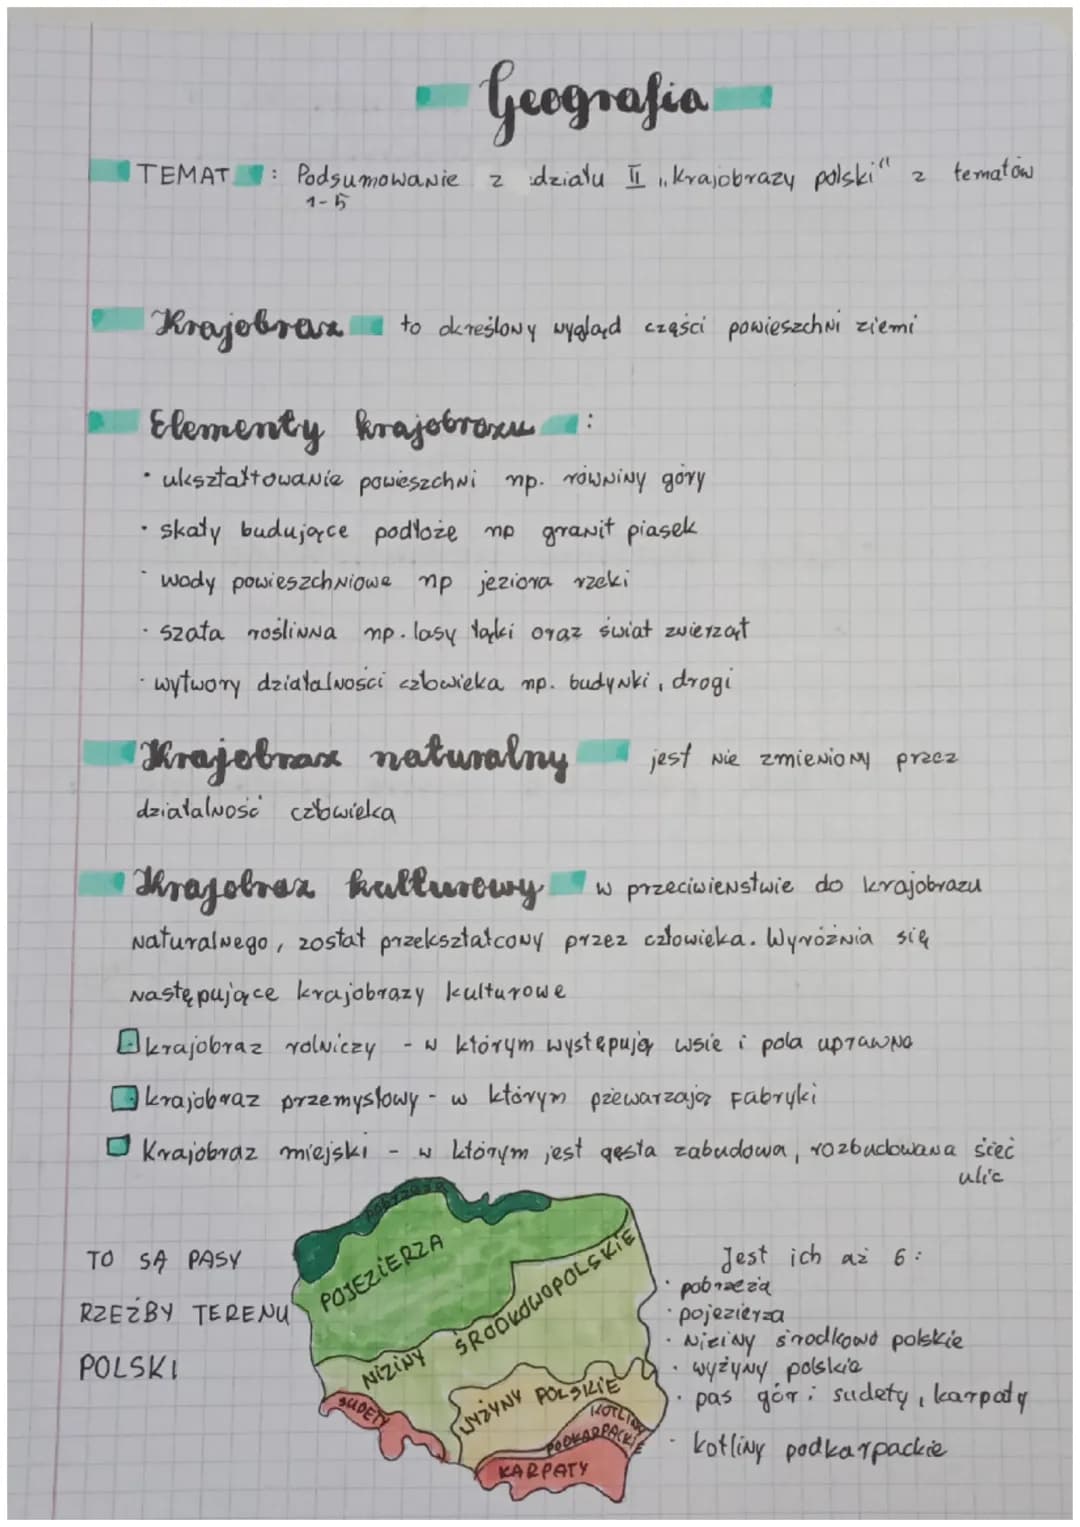 Geografia
TEMAT: Podsumowanie z działu II „Krajobrazy polski" z tematów
1-5
Krajobraz to określony wygląd części powieszchni ziemi
Elementy krajobrazu:
· ukształtowanie powieszchni np. równiny góry
· skały budujące podłoże np granit piasek
- wody powieszchniowe np jeziora rzeki
· szata roślinna np. lasy łąki oraz świat zwierząt
· wytwory działalności człowieka np. budynki, drogi
Krajobraz naturalny jest nie zmieniony przez
działalność człowieka
Krajobraz kulturowy w przeciwienstwie do krajobrazu
naturalnego, został przekształcony przez człowieka. Wyróżnia się
następujące krajobrazy kulturowe
krajobraz rolniczy - w którym występują wsie i pola uprawne
krajobraz przemysłowy - w którym pzewarzają Fabryki
Krajobraz miejski - w którym jest gęsta zabudowa, rozbudowana śieć
ulic
TO SĄ PASY
RZEŹBY TERENU
POLSKI
POBRZEŻA
POJEZIERZA
NIZINY ŚRODKOWOPOLSKIE
WYŻYNY POLSKIE
SUDETY
KOTLINY
PODKARPACKIE
KARPATY
Jest ich aż 6:
· pobrzeża
· pojezierza
· Niziny środkowo polskie
· wyżyny polskie
· pas gór: sudety, karpaty
· kotliny podkarpackie